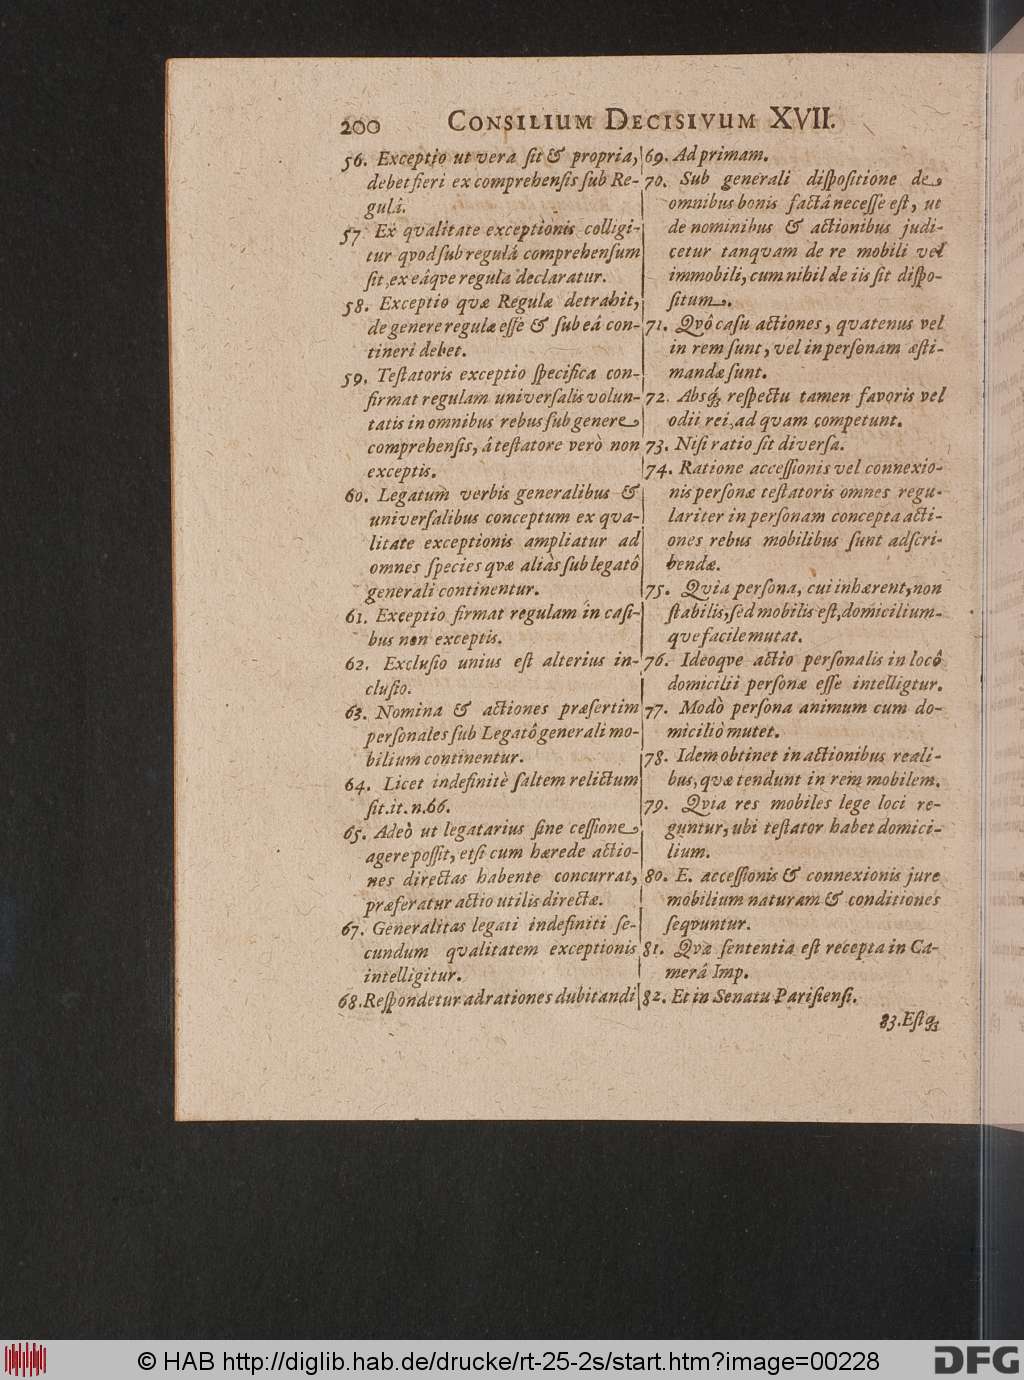 200 CONSILIUM DECISIVUM XVII.
56. Exceptio ut vera ſit & propria,
debet fieri ex comprehenſis ſub Re-
gulâ.
57. Ex qvalitate exceptionis colligi-
tur qvod ſub regulâ comprehenſum
ſit, ex eâqve regula declaratur.
58. Exceptio qvæ Regulæ detrahit,
de genere regulæ eſſe & ſub eâ con-
tineri debet.
59. Teſtatoris exceptio ſpecifica con-
firmat regulam univerſalis volun-
tatis in omnibus rebus ſub genere
comprehenſis, â teſtatore verò non
exceptis.
60. Legatum verbis generalibus &
univerſalibus conceptum ex qva-
litate exceptionis ampliatur ad
omnes ſpecies qvæ aliàs ſub legatô
generali continentur.
61. Exceptio firmat regulam in caſi-
bus non exceptis.
62. Excluſio unius eſt alterius in-
cluſio.
63. Nomina & actiones præſertim
perſonales ſub Legatô generali mo-
bilium continentur.
64. Licet indefinitè ſaltem relictum
ſit. it. n. 66.
65. Adeò ut legatarius ſine ceſſione
agere poſſit, etſi cum hærede actio-
nes directas habente concurrat,
præferatur actio utilis directæ.
67. Generalitas legati indefiniti ſe-
cundum qvalitatem exceptionis
intelligitur.
68. Reſpondetur ad rationes dubitandi
69. Ad primam.
70. Sub generali diſpoſitione de
omnibus bonis factâ neceſſe eſt, ut
de nominibus & actionibus judi-
cetur tanqvam de re mobili vel
immobili, cum nihil de iis ſit diſpo-
ſitum.
71. Qvô caſu actiones, qvatenus vel
in rem ſunt, vel in perſonam æſti-
mandæ ſunt.
72. Absq́; reſpectu tamen favoris vel
odii rei, ad qvam competunt.
73. Niſi ratio ſit diverſa.
74. Ratione acceſſionis vel connexio-
nis perſonæ teſtatoris omnes regu-
lariter in perſonam concepta acti-
ones rebus mobilibus ſunt adſcri-
bendæ.
75. Qvia perſona, cui inhærent, non
ſtabilis, ſed mobilis eſt, domicilium-
qve facile mutat.
76. Ideoqve actio perſonalis in locô
domicilii perſonæ eſſe intelligtur.
77. Modò perſona animum cum do-
miciliò mutet.
78. Idem obtinet in actionibus reali-
bus, qvæ tendunt in rem mobilem.
79. Qvia res mobiles lege loci re-
guntur, ubi teſtator habet domici-
lium.
80. E. acceſſionis & connexionis jure
mobilium naturam & conditiones
ſeqvuntur.
81. Qvæ ſententia eſt recepta in Ca-
merâ Imp.
82. Et in Senatu Pariſienſi.
83. Eſtq;
© HAB http://diglib.hab.de/drucke/rt-25-2s/start.htm?image=00228
DFG